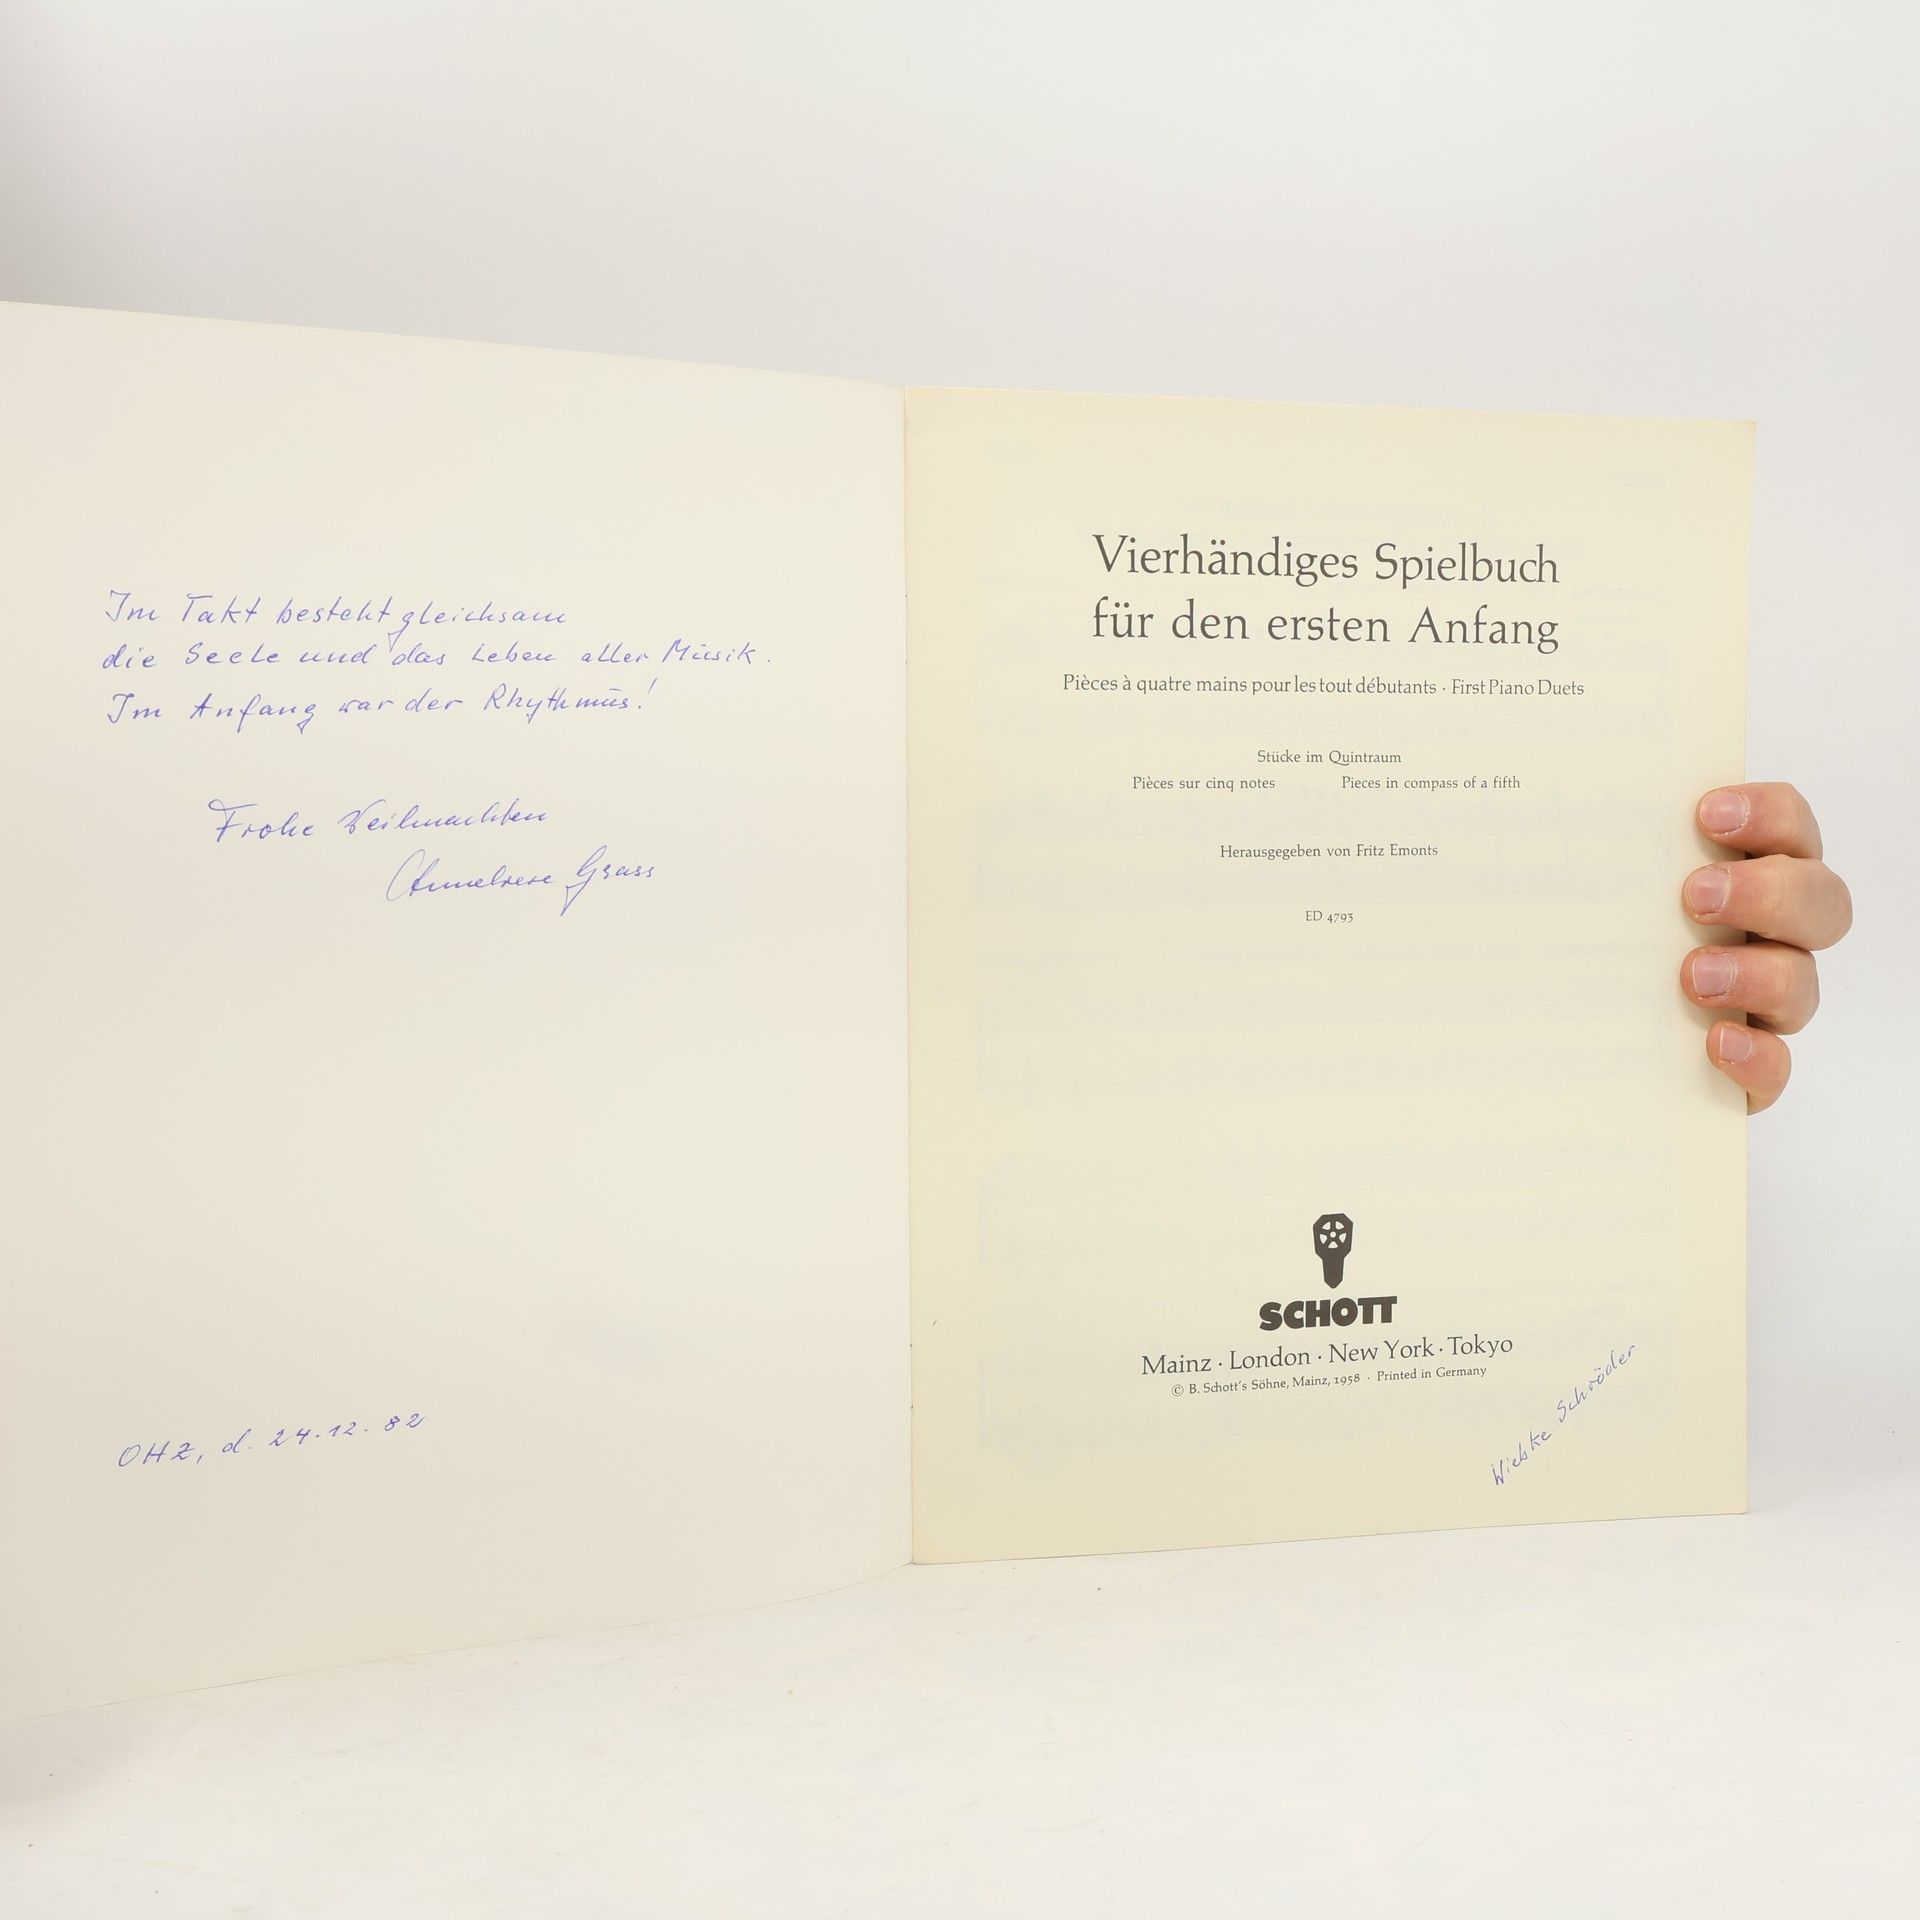 Im Takt besteht gleichsam
die Seele und das Leben aller Musik.
Im Anfang war der Rhythmus!
Frohe Weihnachten
Anneliese Grass
OHZ, d. 24.12.82
Vierhändiges Spielbuch
für den ersten Anfang
Pièces à quatre mains pour les tout débutants · First Piano Duets
Stücke im Quintraum
Pièces sur cinq notes Pieces in compass of a fifth
Herausgegeben von Fritz Emonts
ED 4793
SCHOTT
Mainz · London · New York · Tokyo
© B. Schott's Söhne, Mainz, 1958 · Printed in Germany
Wiebke Schröder